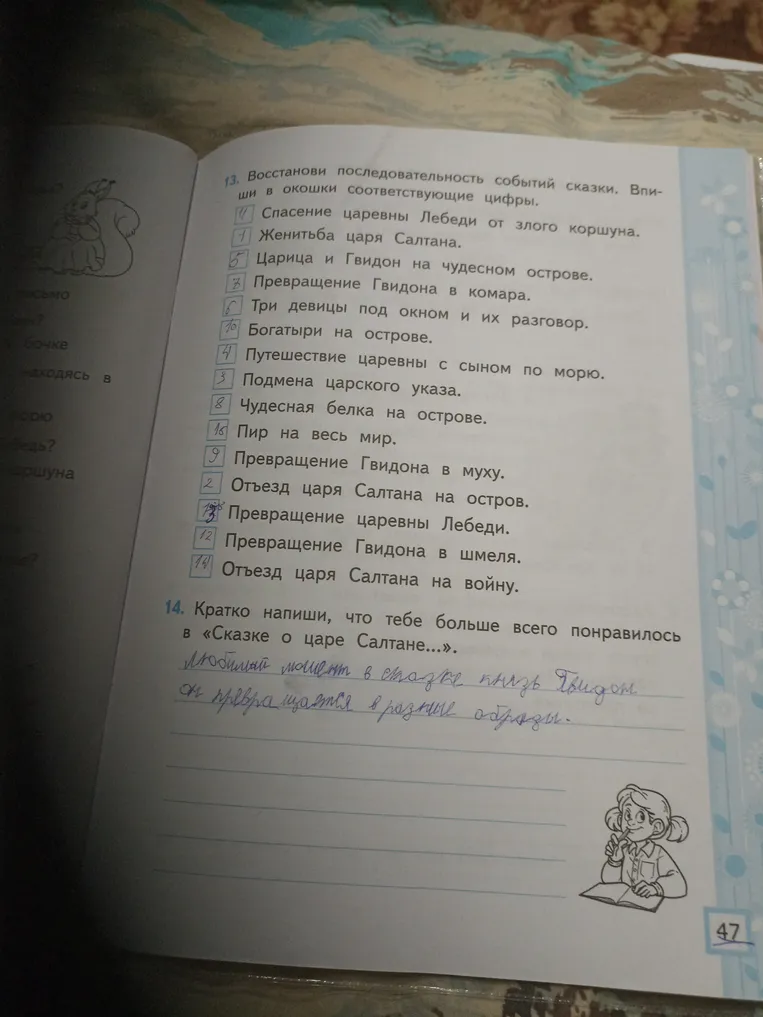 исьмо
бочке
аходясь в
едь?
оршуна
13. Восстанови последовательность событий сказки. Впи-
ши в окошки соответствующие цифры.
Спасение царевны Лебеди от злого коршуна.
1 Женитьба царя Салтана.
5 Царица и Гвидон на чудесном острове.
7 Превращение Гвидона в комара.
Три девицы под окном и их разговор.
10 Богатыри на острове.
4 Путешествие царевны с сыном по морю.
3 Подмена царского указа.
8 Чудесная белка на острове.
Пир на весь мир.
9 Превращение Гвидона в муху.
2 Отъезд царя Салтана на остров.
Превращение царевны Лебеди.
12 Превращение Гвидона в шмеля.
14 Отъезд царя Салтана на войну.
14. Кратко напиши, что тебе больше всего понравилось
в «Сказке о царе Салтане...».
любимый момент в сказке князь Гвидон
он превращается в разные образы.
47